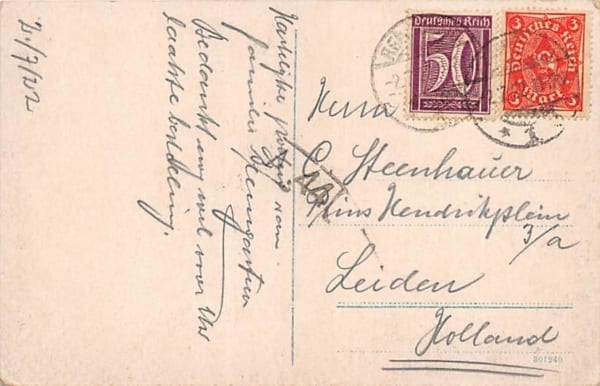 2/7/22
Hartelijke groeten van
familie
Bedankt nog wel voor Uw
laatste bestelling.
Deutsches Reich
50
3 3
Deutsches Reich
3 Mark 3
Herrn
C. Steenhauer
Prins Hendrikplein
3/a
Leiden
Holland
301940